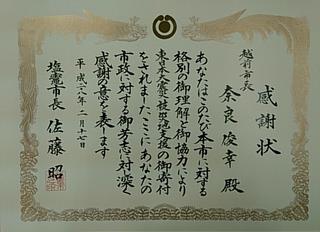 感謝状
越前市長
奈良俊幸殿
あなたはこのたび本市に対する
格別の御理解と御協力により
東日本大震災被災地支援の御寄付
をされました ここにあなたの
市政に対する御芳志に対し深く
感謝の意を表します
平成二八年二月十七日
塩竈市長 佐藤昭